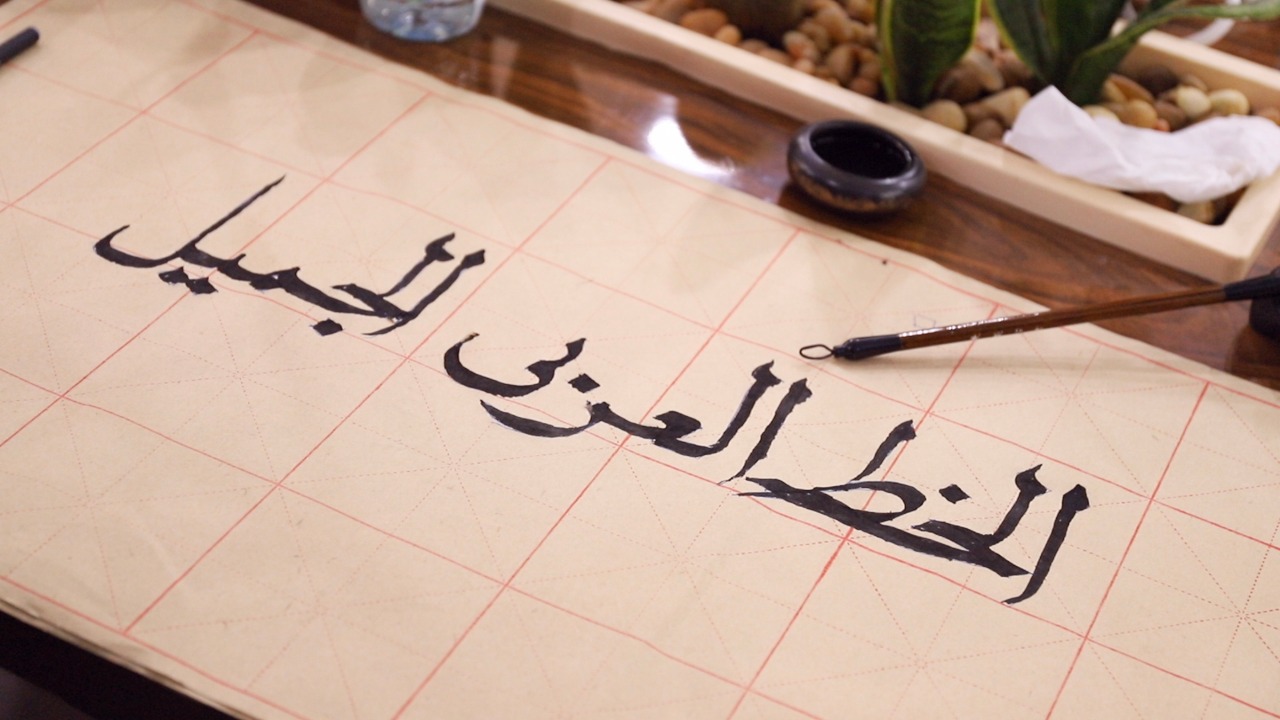 الخط العربى الجميل